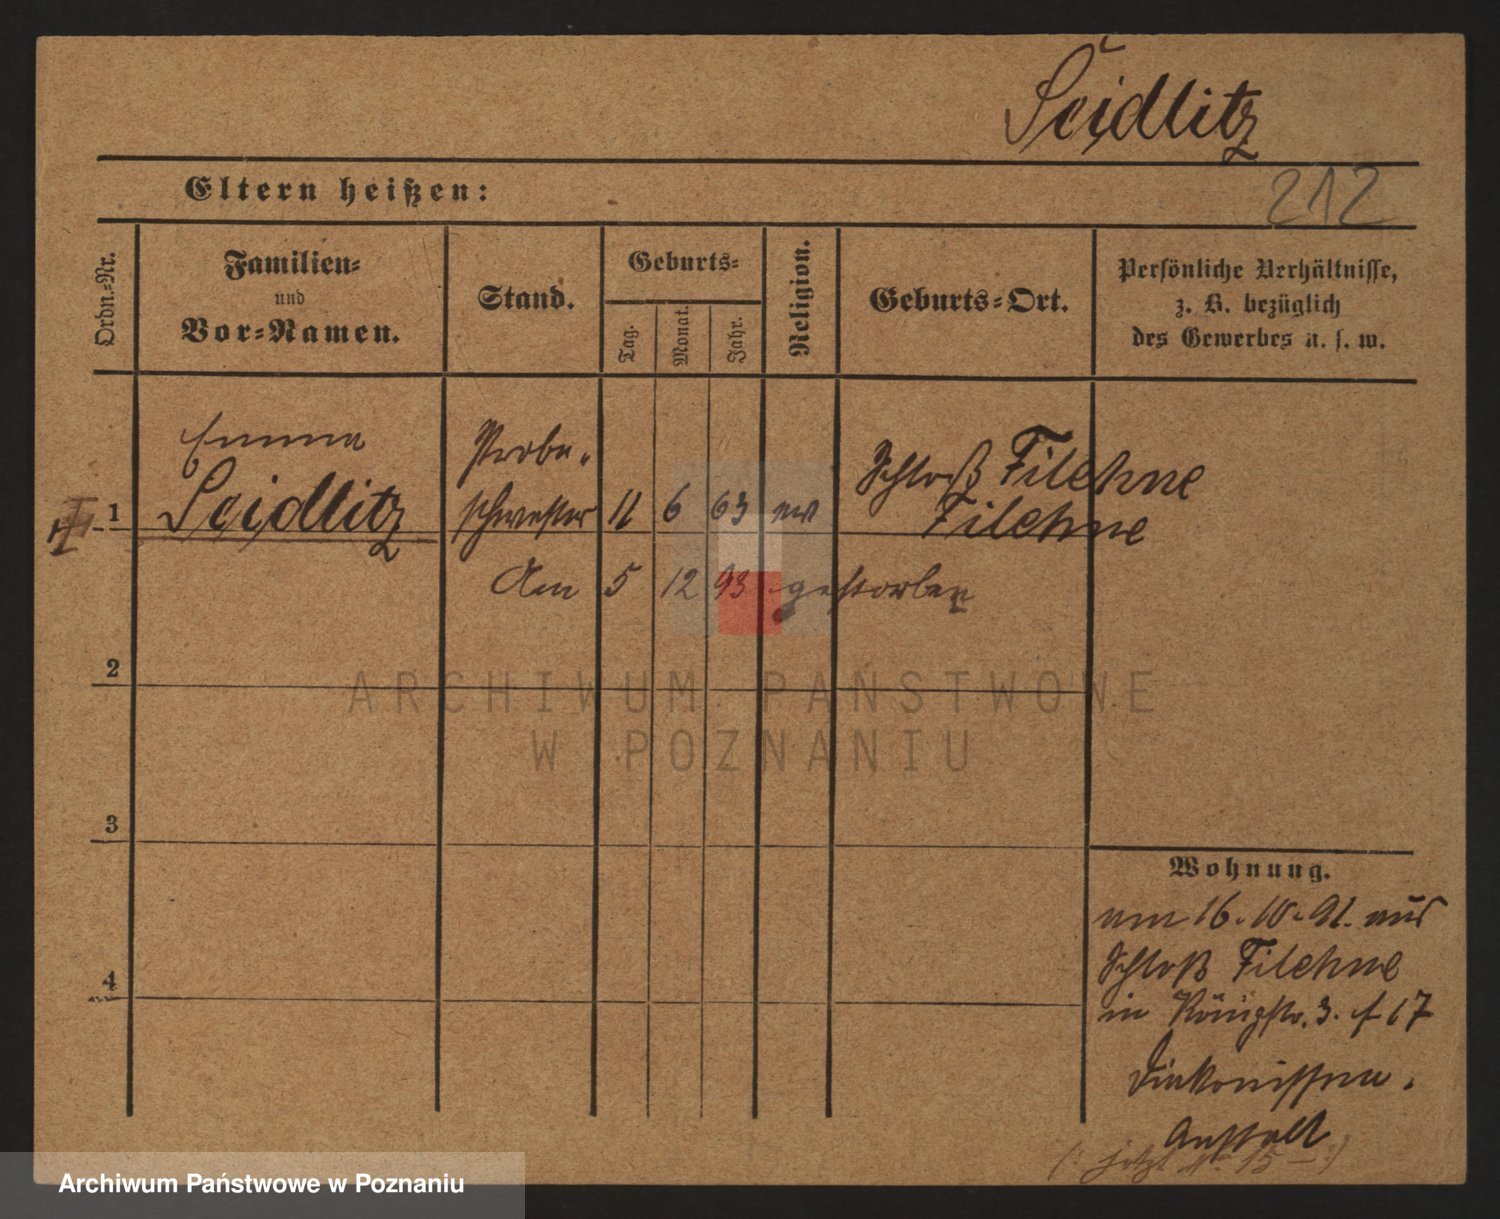 Seidlitz
Eltern heißen:
212
Ordn.-Nr.
Familien-
und
Vor-Namen.
Stand.
Geburts-
Tag.
Monat.
Jahr.
Religion.
Geburts-Ort.
Persönliche Verhältnisse,
z. B. bezüglich
des Gewerbes u. s. w.
Emma
Seidlitz
Probe-
schwester
11 6 63 ev
Schloß Filehne
Filehne
1
Am 5 12 93 gestorben
2
3
4
ARCHIWUM PAŃSTWOWE
W POZNANIU
Wohnung.
am 16.10.91. aus
Schloß Filehne
in Königstr. 3. f 17
Diakonissen-
Anstalt
(: jetzt № 15 :)
Archiwum Państwowe w Poznaniu